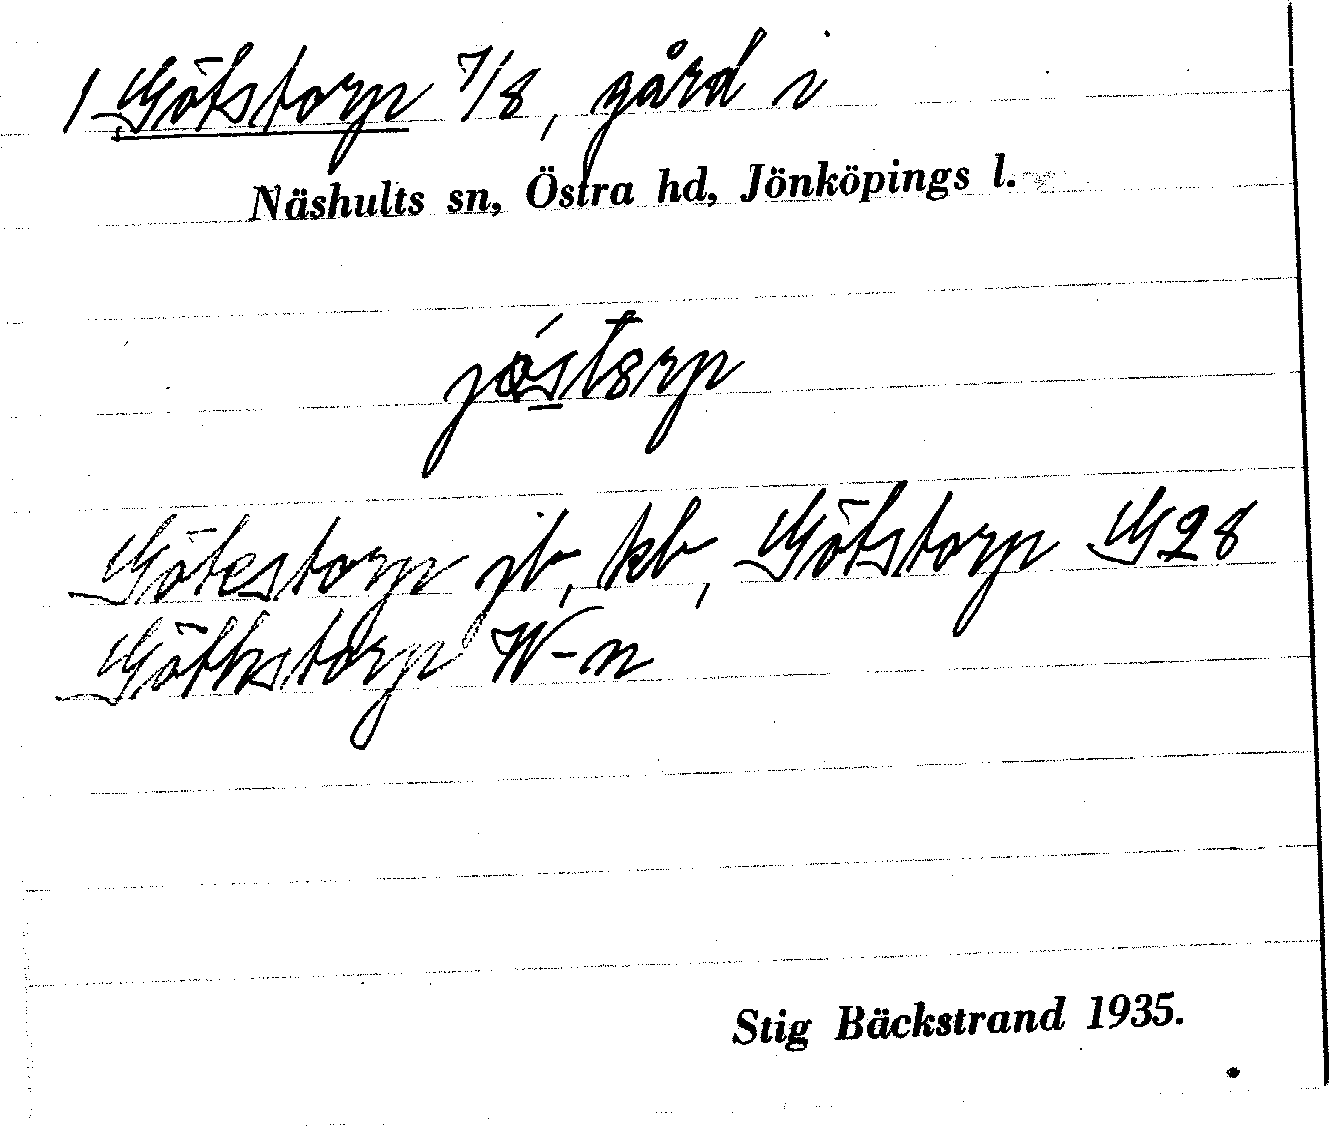 1 Götstorp 7/8, gård i
Näshults sn, Östra hd, Jönköpings l.
jøśtɞrp
Götestorp jb, kb, Götstorp G28
Göthstorp W-n
Stig Bäckstrand 1935.